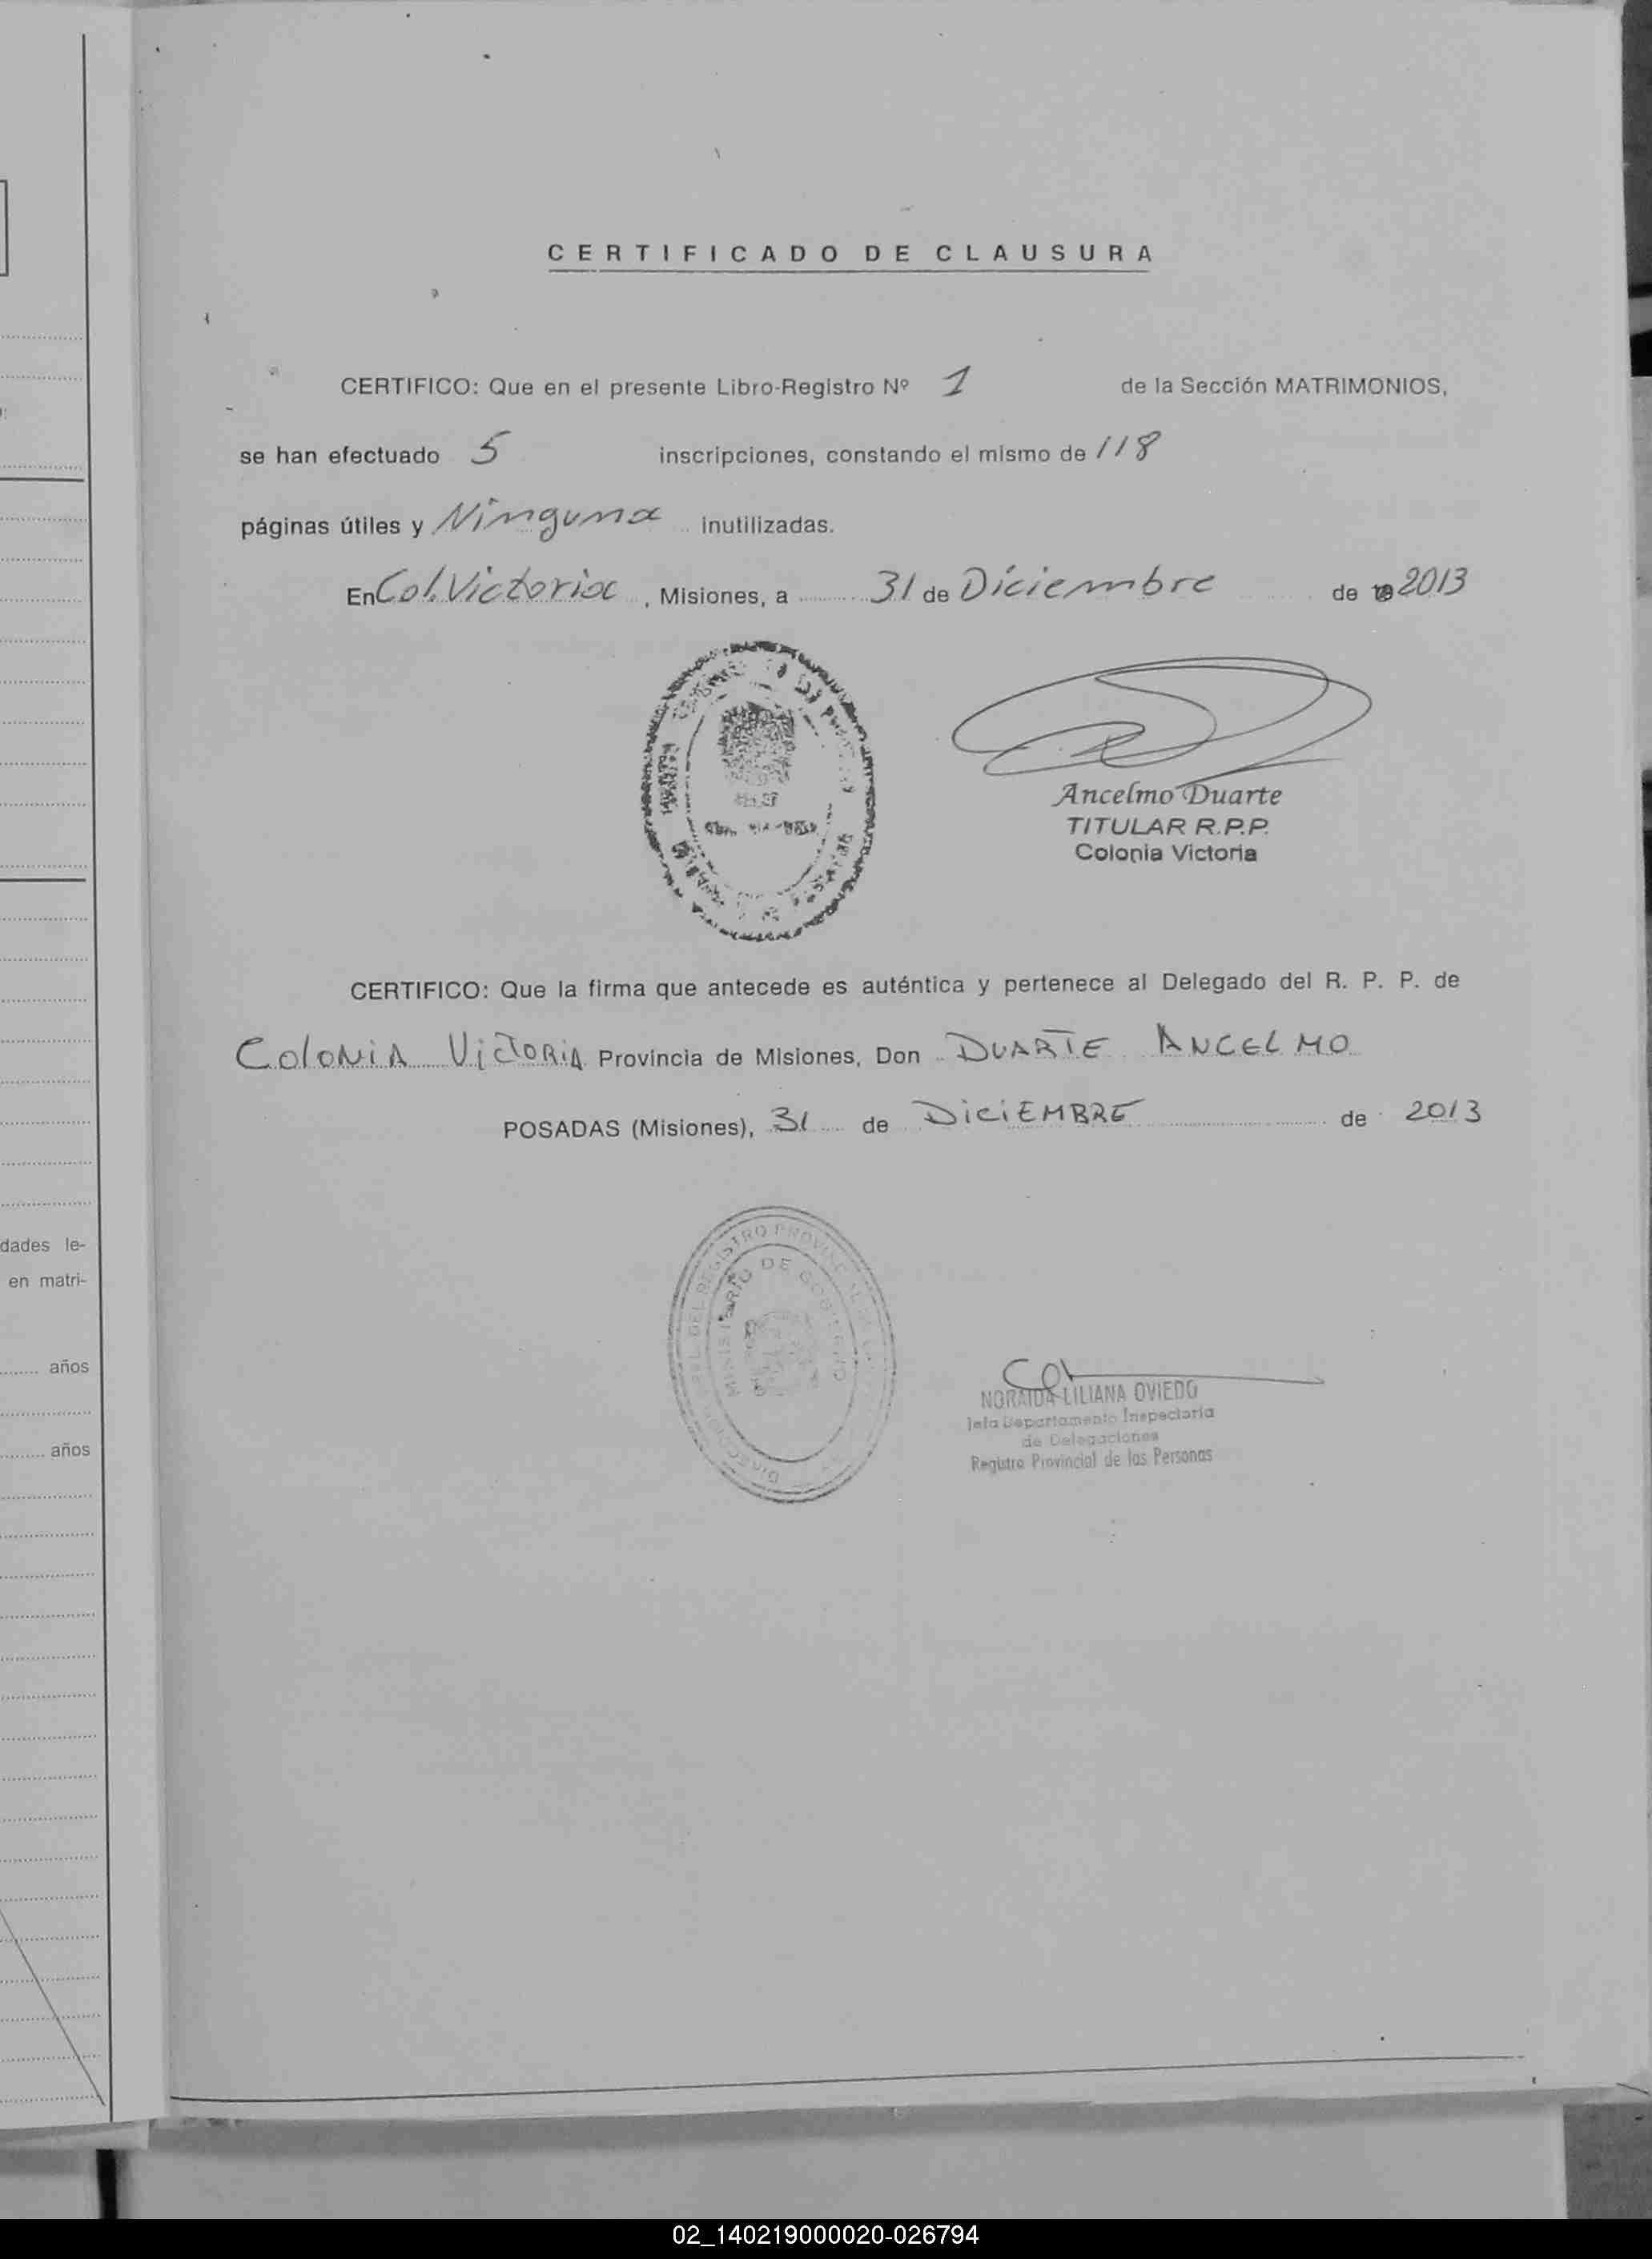 CERTIFICADO DE CLAUSURA
CERTIFICO: Que en el presente Libro-Registro Nº 1 de la Sección MATRIMONIOS,
se han efectuado 5 inscripciones, constando el mismo de 118
páginas útiles y Ninguna inutilizadas.
En Col. Victoria, Misiones, a 31 de Diciembre de 2013
Ancelmo Duarte
TITULAR R.P.P.
Colonia Victoria
CERTIFICO: Que la firma que antecede es auténtica y pertenece al Delegado del R. P. P. de
COLONIA VICTORIA Provincia de Misiones, Don DUARTE ANCELMO
POSADAS (Misiones), 31 de DICIEMBRE de 2013
DEL REGISTRO PROVINCIAL
MINISTERIO DE GOBIERNO
NORAIDA LILIANA OVIEDO
Jefa Departamento Inspectoria
de Delegaciones
Registro Provincial de las Personas
dades le-
en matri-
años
años
02_140219000020-026794